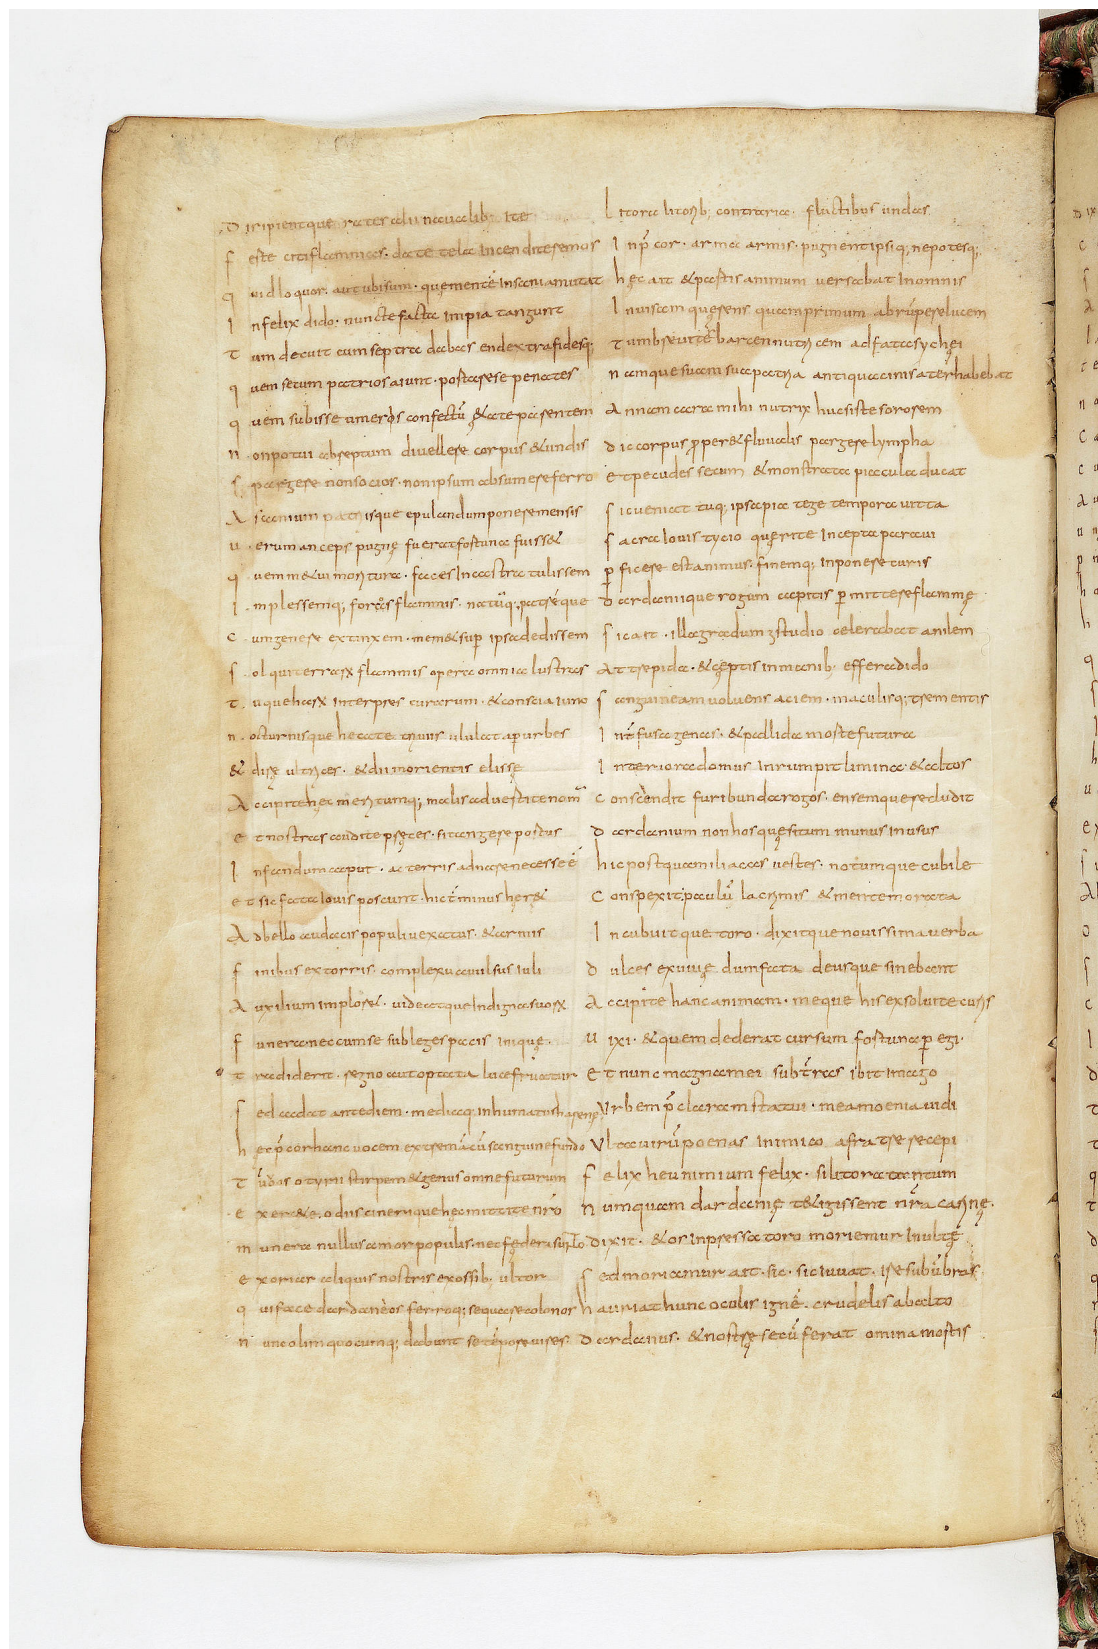 D iripientque rates alii navalib; ite
f erte citi flammas. date tela incendite remos
q uid loquor. aut ubi sum. quę mentē insania mutat
I nfelix dido. nunc te facta impia tangunt
T um decuit cum septra dabas en dextra fidesq;
q uem secum patrios aiunt. portare se penates
q uem subisse umeros confectū ętate parentem
n on potui abreptum divellere corpus & undis
s pargere non socios. non ipsum absumere ferro
A scanium patriisque epulandum ponere mensis
u erum anceps pugnę fuerat fortuna fuiss&
q uem m&ui moritura. faces in castra tulissem
I mplessemq; foros flammis. natūq; patrēque
c um genere extinxem. mem& sup ipsa dedissem
s ol qui terrarx flammis opera omnia lustras
t uque harx interpres curarum. & conscia iuno
n octurnisque hecate triviis ululata p urbes
& dirę ultrices. & dii morientis elissę
A ccipite hęc meritumq; malis advertite nom̄
e t nostras audite pręces. si tangere portus
I nfandum caput. ac terris adnare necesse ē
e t sic fata Iovis poscunt. hic t̄minus hęr&
A d bello audacis populi vexatus. & armis
f inibus extorris. complexu avulsus iuli
A uxilium implor&. videatque Indigna suorx
f unera nec cum se sub leges pacis iniquę.
t radiderit. regno aut optata luce fruatur
s ed cadat ante diem. mediaq; inhumatus harena
h ęc p̄cor hanc vocem extremā cū sanguine fundo
T ū vos o tyrii stirpem & genus omne futurum
e xerc&e. odiis cinerique hęc mittite nr̄o
m unera nullus amor populis. nec fędera sunto
e xoriar aliquis nostris ex ossib; ultor
q ui face dardaneos ferroq; sequare colonos
n unc olim quocumq; dabunt se tēpore vires.
L itora litorib; contraria. fluctibus undas
I np̄cor. arma armis. pugnent ipsiq; nepotesq;
h ęc ait & partis animum versabat In omnis
I nvisam quęrens quam primum abrūpere lucem
T um breviter barcen nutricem adfata sychęi
n amque suam sua patria antiqua cinis ater habebat
A nnam cara mihi nutrix huc siste sororem
D ic corpus properet fluviali spargere lympha
e t pecudes secum & monstrata piacula ducat
s ic veniat tuq; ipsa pia tege tempora vitta
s acra Iovis tygio quę rite Incepta paravi
p ficere est animus. finemq; inponere curis
D ardaniique rogum capitis p mittere flammę
s ic ait. illa gradum studio celerabat anilem
At trepida. & cęptis inmanib; effera dido
s anguineam volvens aciem. maculisq; trementis
I nt̄fusa genas. & pallida morte futura
I nteriora domus inrumpit limina. & altos
C onscendit furibunda rogos. ensemque recludit
D ardanium non hos quęsitum munus in usus
h ic postquam iliacas vestes. notumque cubile
C onspexit. paulū lacrimis & mente morata
I ncubuitque toro. dixitque novissima verba
D ulces exuvię dum fata deusque sinebant
A ccipite hanc animam. meque his exsolvite curis
u ixi. & quem dederat cursum fortuna p egi.
E t nunc magna mei sub t̄ras ibit imago
U rbem p̄claram statui. mea moenia vidi
V lta virū poenas inimico a fratre recepi
f elix heu nimium felix. si litora tantum
n umquam dardanię t&igissent nr̄a carinę.
dixit. & os inpressa toro moriemur inultę
s ed moriamur ait. sic. sic iuvat. ire sub ūbras
h auriat hunc oculis ignē. crudelis ab alto
D ardanus. & nostrę secū ferat omina mortis